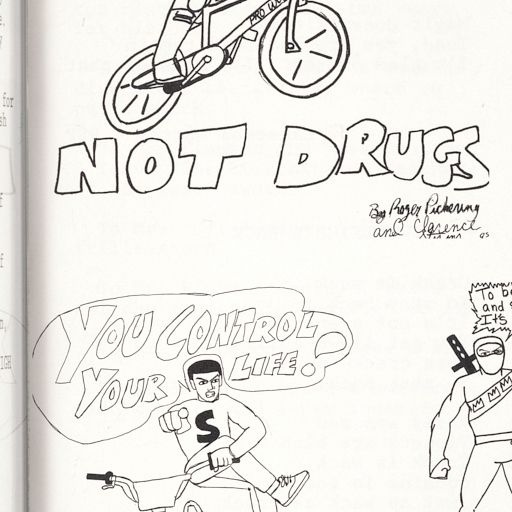 PRO
NOT DRUGS
By Roger Pickering
and Clarence
YOU CONTROL
YOUR LIFE!
S
To b
and
ITS
for
sh
f
f